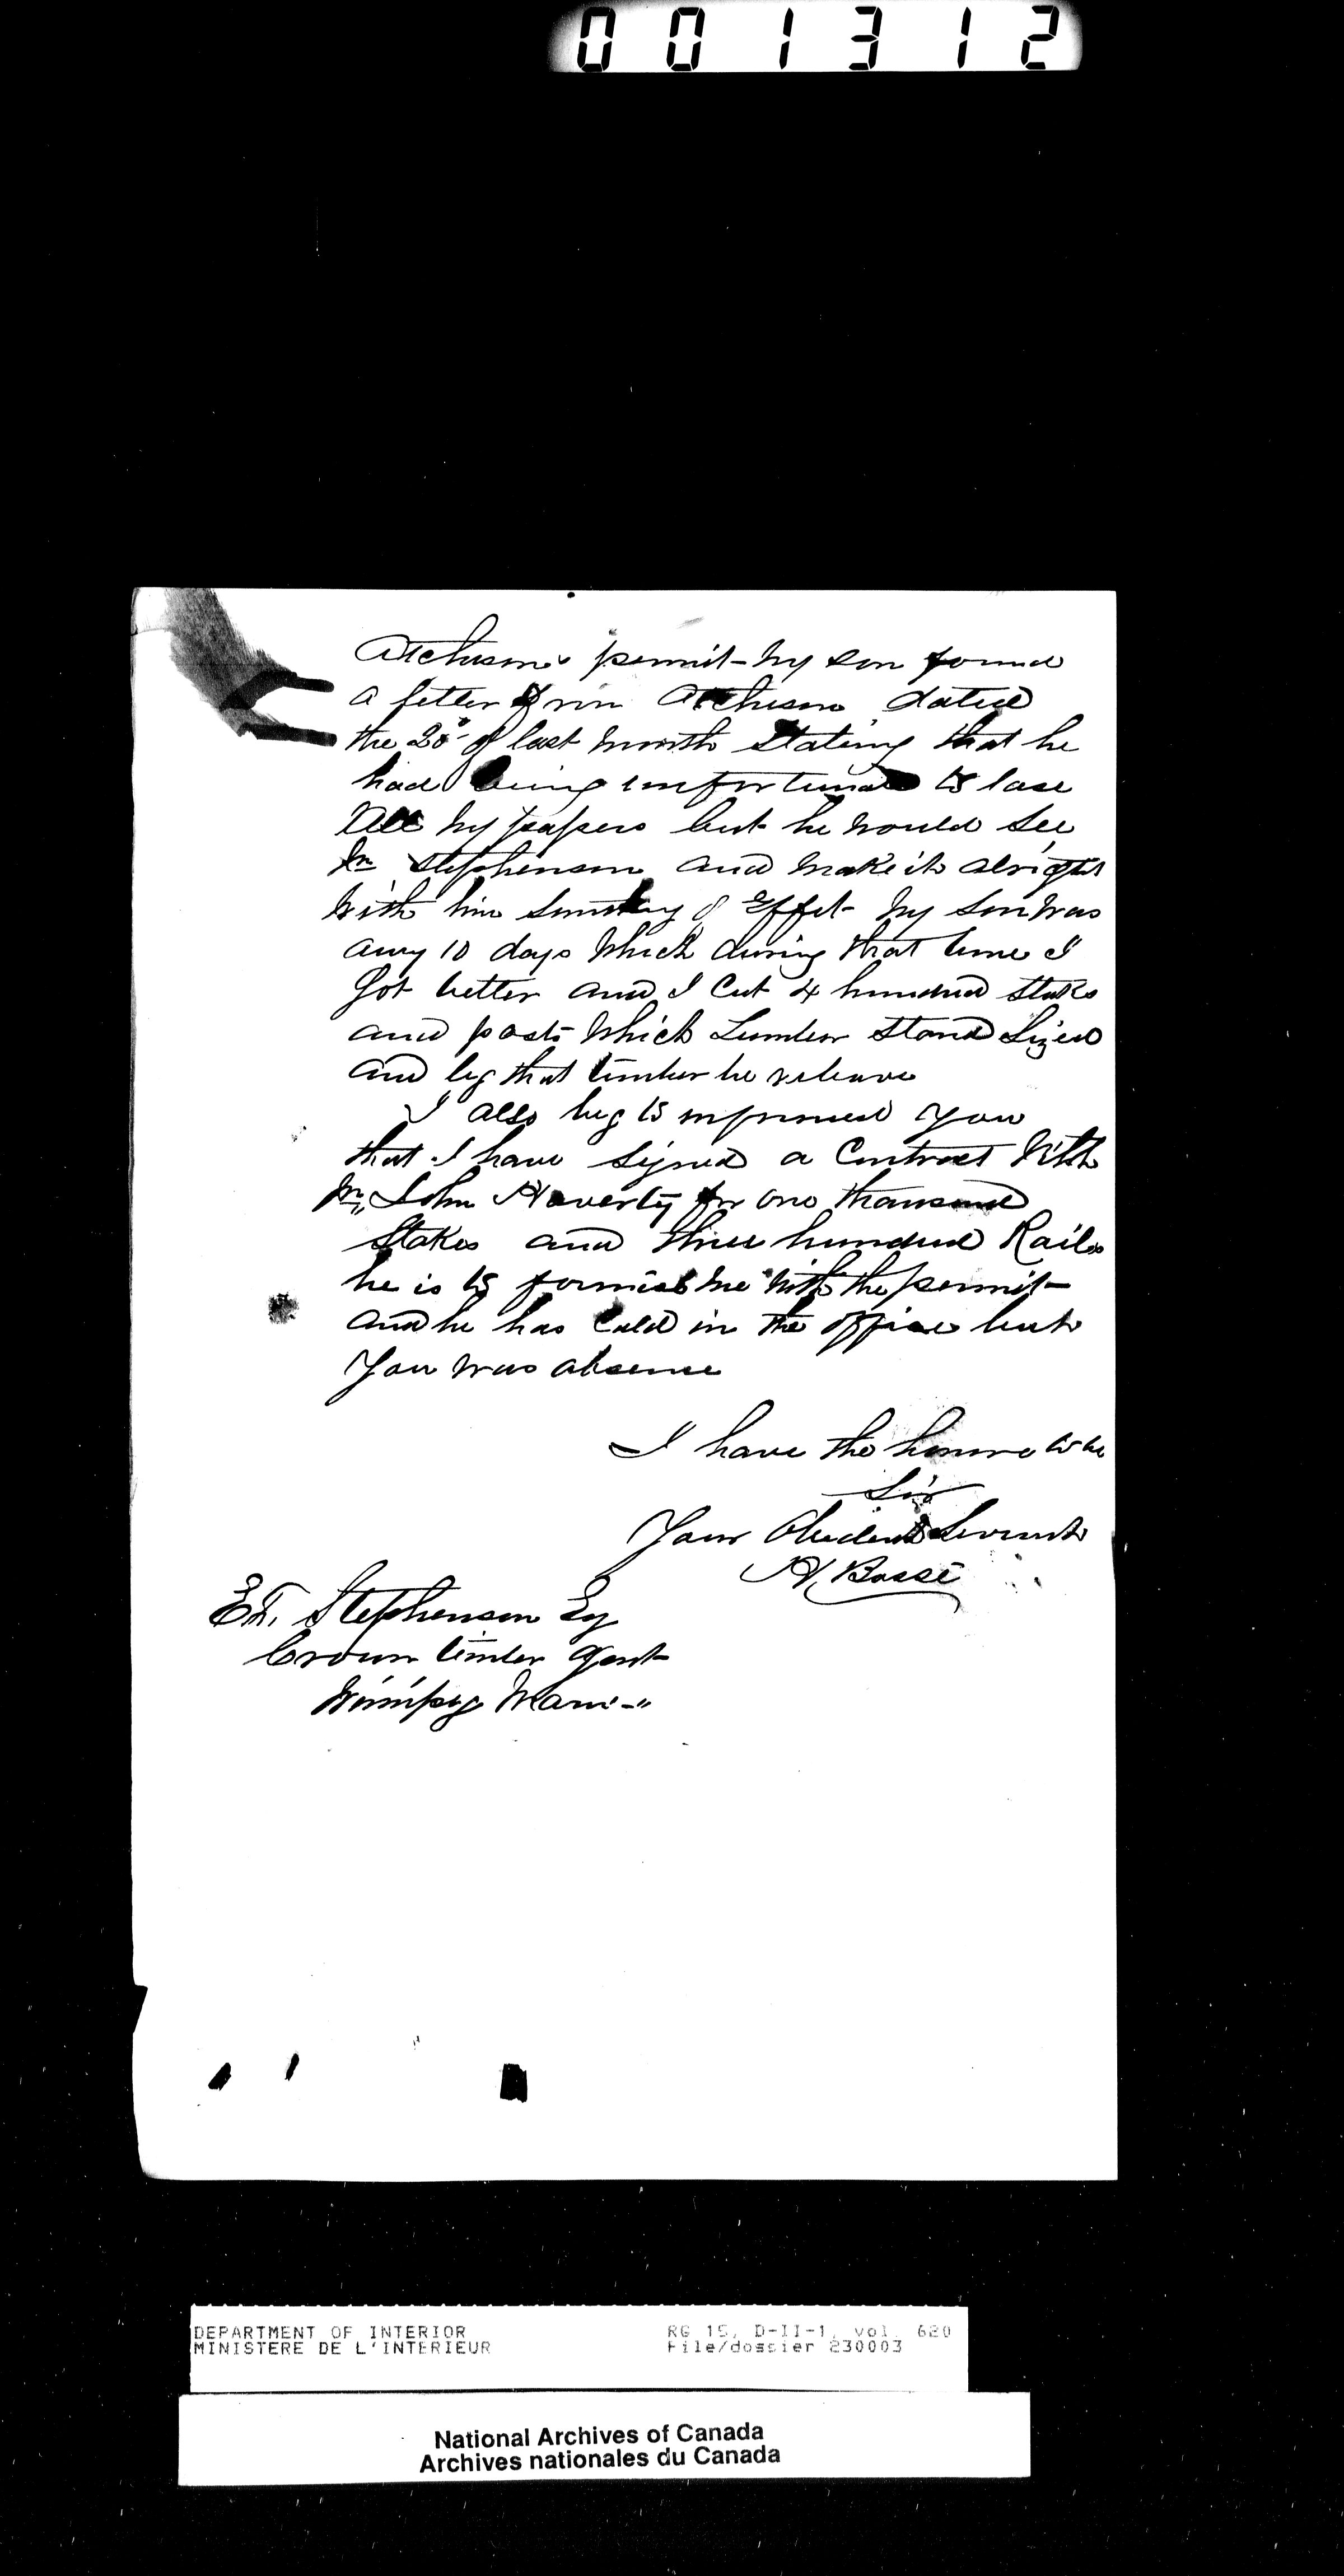 001312
Atchison's permit - my son found
a letter from Atchison dated
the 20 of last month stating that he
had being unfortunate to lose
all my papers but he would see
Mr Stephenson and make it alright
with him Effet my son was
away 10 days which during that time I
Got better and I Cut 4 hundred stakes
and posts which Lumber stand Sized
and beg that timber be releave
I also beg to informed you
that I have signed a Contract With
Mr. John Haverty for one thousand
Stakes and three hundred Rails
he is to fornish me with the permit -
and he has Calld in the office but
You was absence
I have the honnre to be
Sir
Your Obedient Servant
H, Bossé
E.F. Stephenson Esq
Crown timber Agent
Winnipeg Mani - "
DEPARTMENT OF INTERIOR
MINISTERE DE L'INTERIEUR
RG 15, D-II-1, vol. 620
File/dossier 230003
National Archives of Canada
Archives nationales du Canada